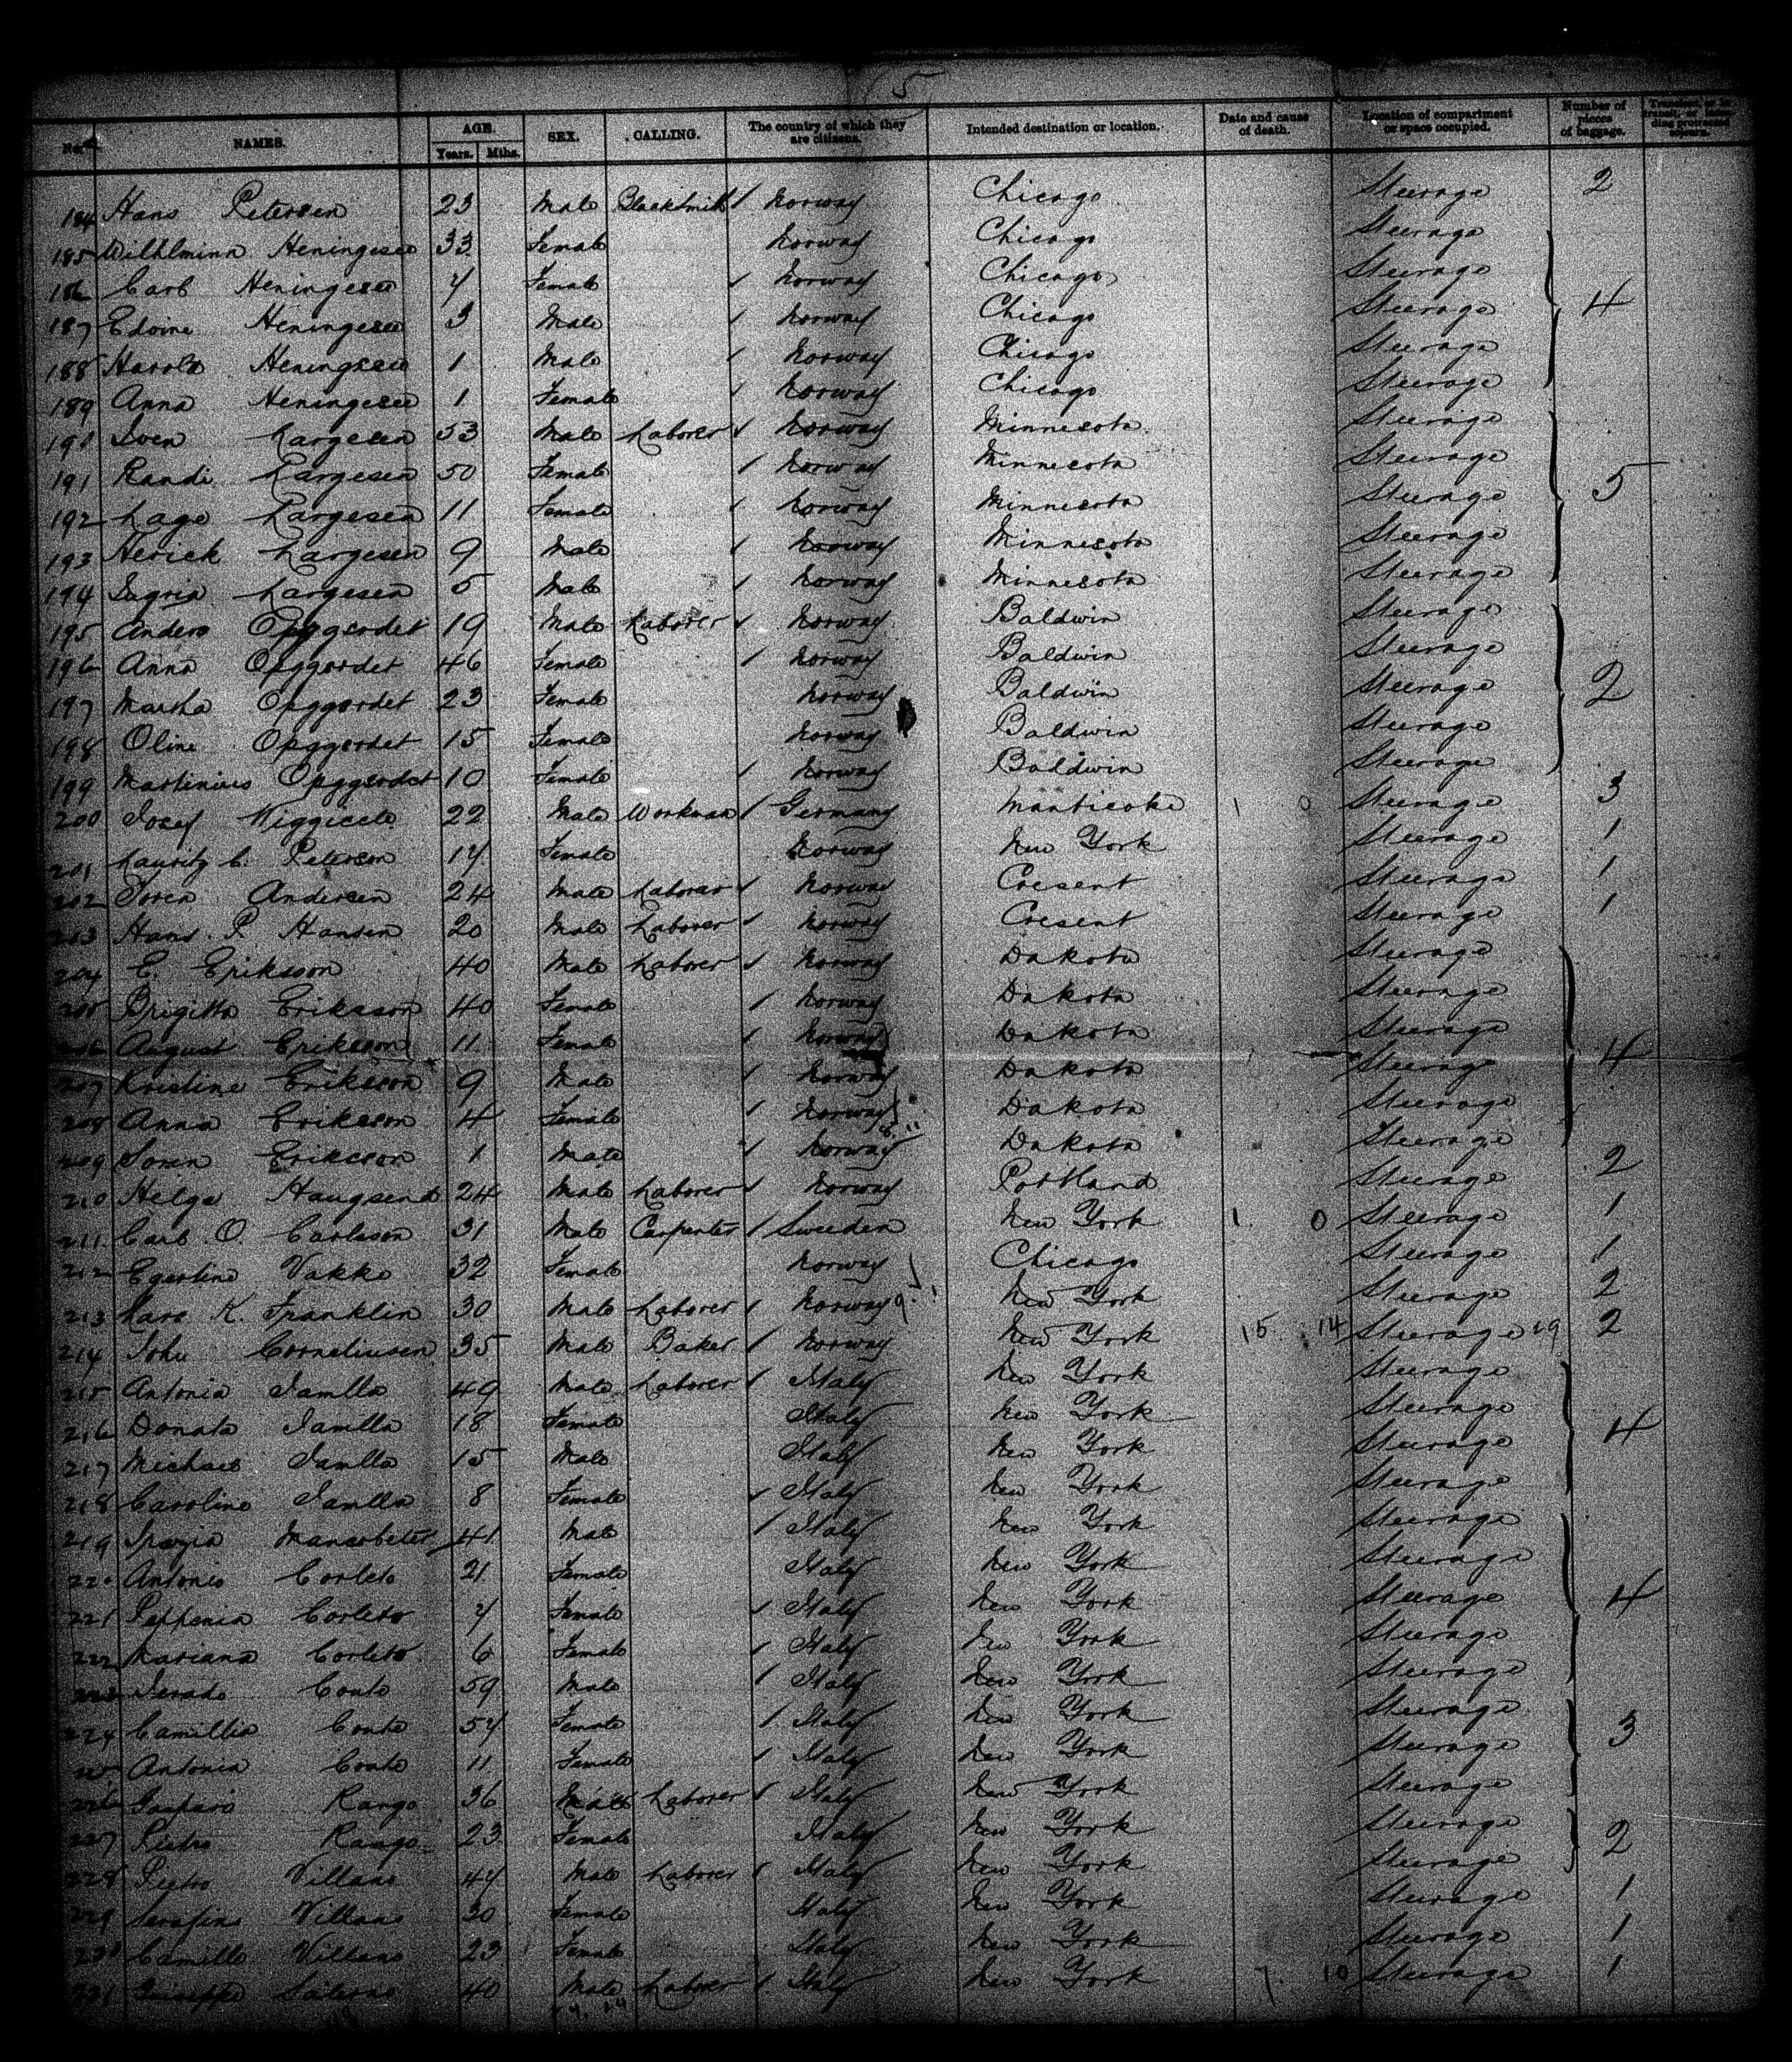 5
No. NAMES. AGE. Years. Mths. SEX. CALLING. The country of which they are citizens. Intended destination or location. Date and cause of death. Location of compartment or space occupied. Number of pieces of baggage.
184 Hans Petersen 23 Male Blacksmith Norway Chicago Steerage 2
185 Wilhlminn Heningesen 33 Female Norway Chicago Steerage
186 Carl Heningesen 4 Female Norway Chicago Steerage
187 Edvine Heningesen 3 Male Norway Chicago Steerage 4
188 Harold Heningsen 1 Male Norway Chicago Steerage
189 Anna Heningesen 1 Female Norway Chicago Steerage
190 Sven Largesen 53 Male Laborer Norway Minnesota Steerage
191 Randi Largesen 50 Female Norway Minnesota Steerage 5
192 Lage Largesen 11 Female Norway Minnesota Steerage
193 Herick Largesen 9 Male Norway Minnesota Steerage
194 Largesen 5 Male Norway Minnesota Steerage
195 Anders Opggordet 19 Male Laborer Norway Baldwin Steerage
196 Anna Opggordet 46 Female Norway Baldwin Steerage
197 Martha Opggordet 23 Female Norway Baldwin Steerage 2
198 Oline Opggordet 15 Female Norway Baldwin Steerage
199 Martinius Opggordet 10 Female Norway Baldwin Steerage
200 Josef 22 Male Workman Germany Nanticoke 1 0 Steerage 3
201 Lauritz C. Peterson 14 Female Norway New York Steerage 1
202 Soren Andersen 24 Male Laborer Norway Cresent Steerage 1
203 Hans P. Hansen 20 Male Laborer Norway Cresent Steerage 1
204 E. Eriksson 40 Male Laborer Norway Dakota Steerage
205 Brigitta Eriksson 40 Female Norway Dakota Steerage
206 August Eriksson 11 Female Norway Dakota Steerage
207 Kristine Eriksson 9 Male Norway Dakota Steerage 4
208 Anna Eriksson 4 Female Norway Dakota Steerage
209 Soren Eriksson 1 Male Norway Dakota Steerage
210 Helge Haugsend 24 Male Laborer Norway Portland Steerage 2
211 Carl O. Carlsson 31 Male Carpenter Sweeden New York 1 0 Steerage 1
212 Vakke 32 Female Norway Chicago Steerage 1
213 Lars K. Franklin 30 Male Laborer Norway New York Steerage 2
214 John Corneliusen 35 Male Baker Norway New York 15 14 Steerage 29 2
215 Antonia Iamlla 49 Male Laborer Italy New York Steerage
216 Donata Iamlla 18 Female Italy New York Steerage
217 Michael Iamlla 15 Male Italy New York Steerage 4
218 Caroline Iamlla 8 Female Italy New York Steerage
219 41 Male Italy New York Steerage
220 Antonio Corleto 21 Female Italy New York Steerage
221 Peppenia Corleto 4 Female Italy New York Steerage 4
222 Mariana Corleto 6 Female Italy New York Steerage
223 Conte 59 Male Italy New York Steerage
224 Camillia Conte 54 Female Italy New York Steerage
225 Antonia Conte 11 Female Italy New York Steerage 3
226 Gaspari Rango 36 Male Laborer Italy New York Steerage
227 Pietro Rango 23 Female Italy New York Steerage 2
228 Pietro Villano 44 Male Laborer Italy New York Steerage
229 Serafino Villano 30 Female Italy New York Steerage 1
230 Camillo Villano 23 Female Italy New York Steerage 1
231 Giuseppe 40 Male Laborer Italy New York 7 10 Steerage 1